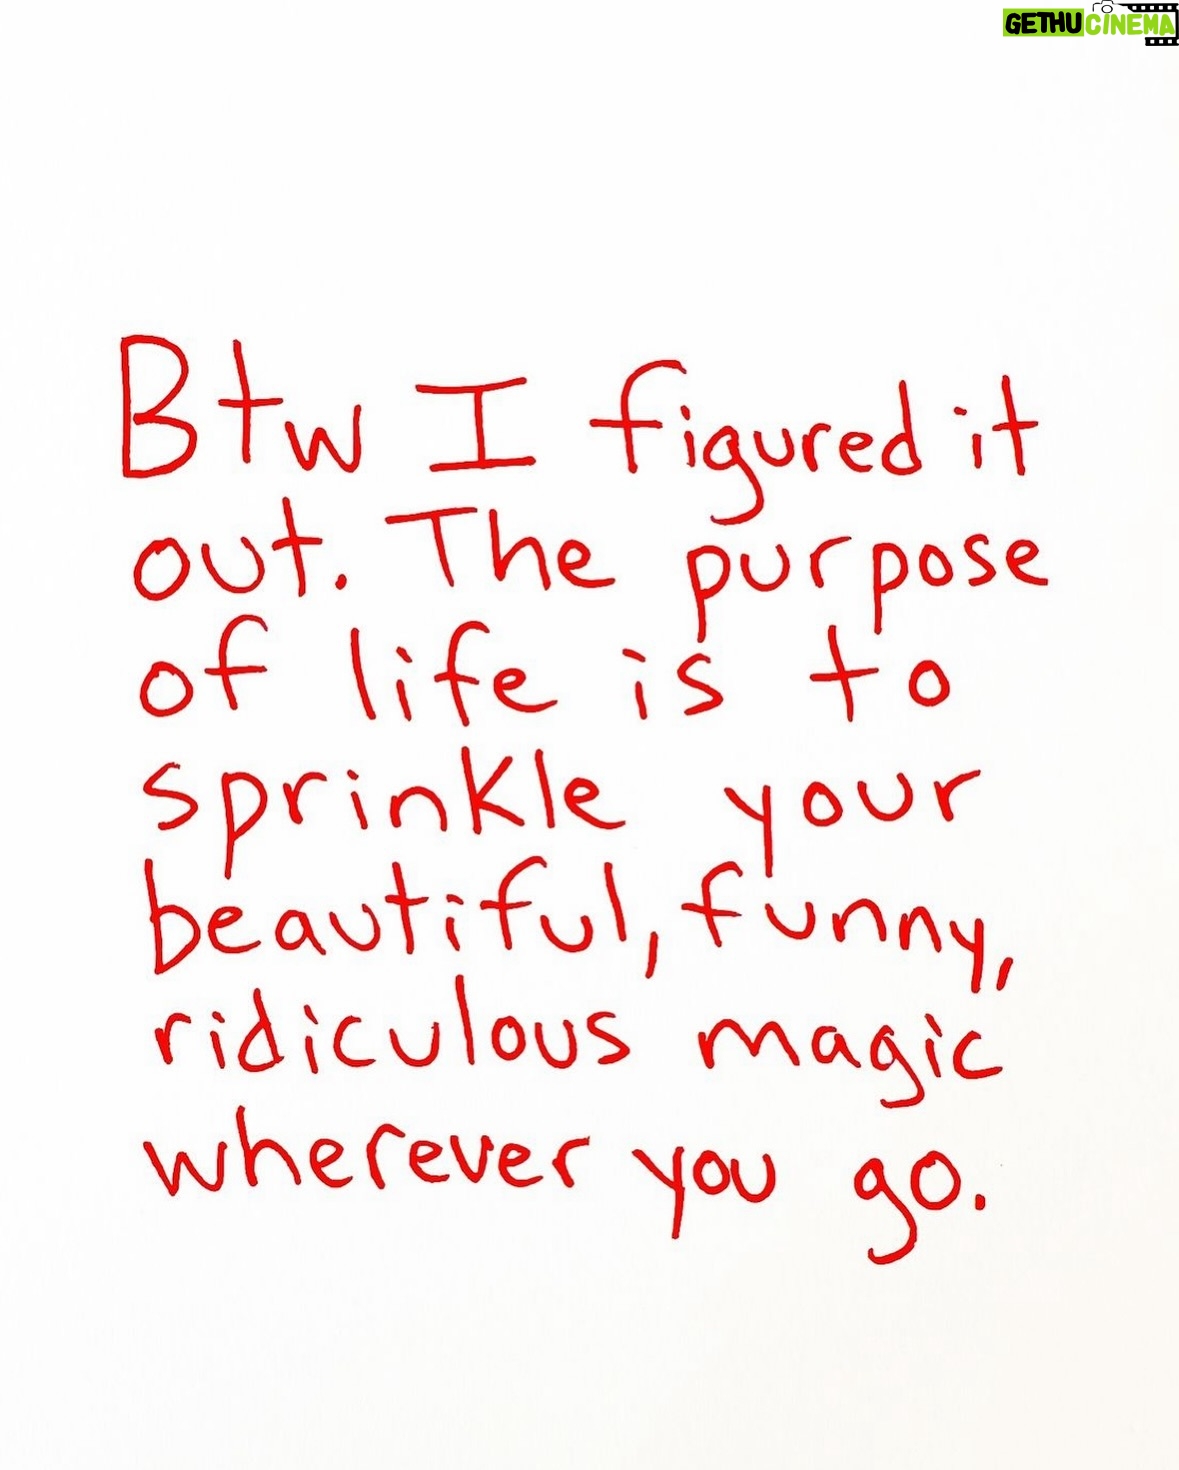 GETHUCINEMA
Btw I figured it
out. The purpose
of life is to
sprinkle your
beautiful, funny,
ridiculous magic
wherever you go.